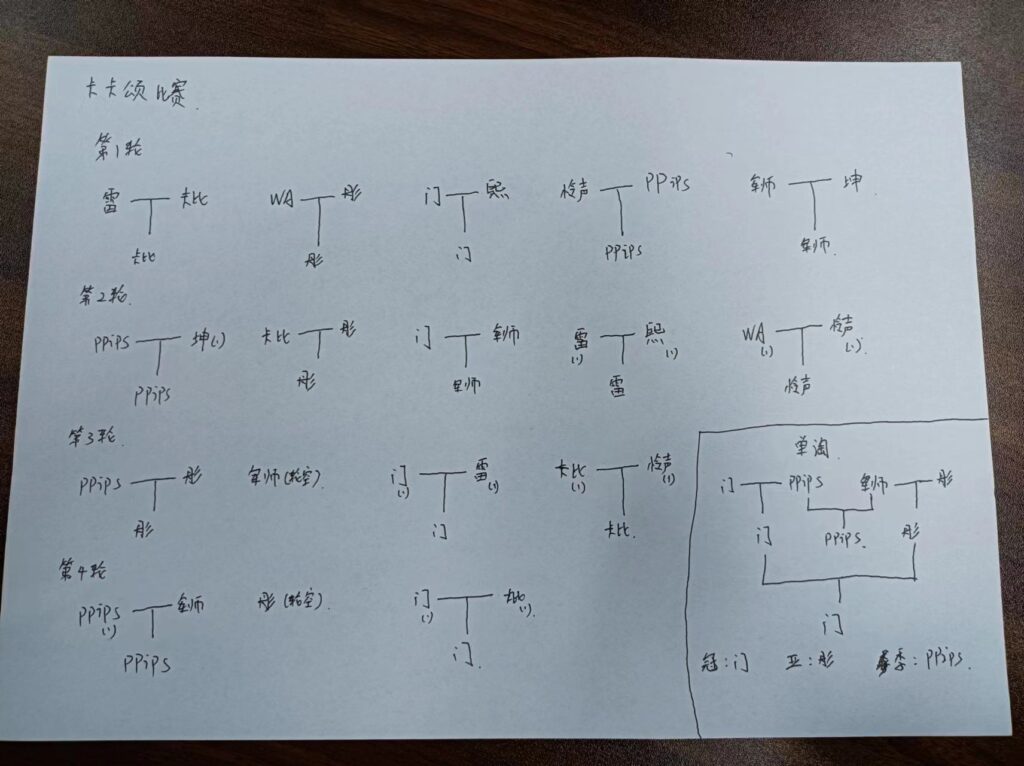 卡卡颂比赛.
第1轮
雷 卡比 WA 彤 门 熙 铃声 PPiPS 军师 坤
卡比 彤 门 PPiPS 军师
第2轮
PPiPS 坤(1) 卡比 彤 门 军师 雷(1) 熙(1) WA(1) 铃声(1)
PPiPS 彤 军师 雷 铃声
第3轮
PPiPS 彤 军师(轮空) 门(1) 雷(1) 卡比(1) 铃声(1)
彤 门 卡比
第4轮
PPiPS(1) 军师 彤(轮空) 门(1) 卡比(1)
PPiPS 门
单淘
门 PPiPS 军师 彤
门 PPiPS 彤
门
冠:门 亚:彤 季:PPiPS